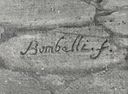 Bombelli. f.